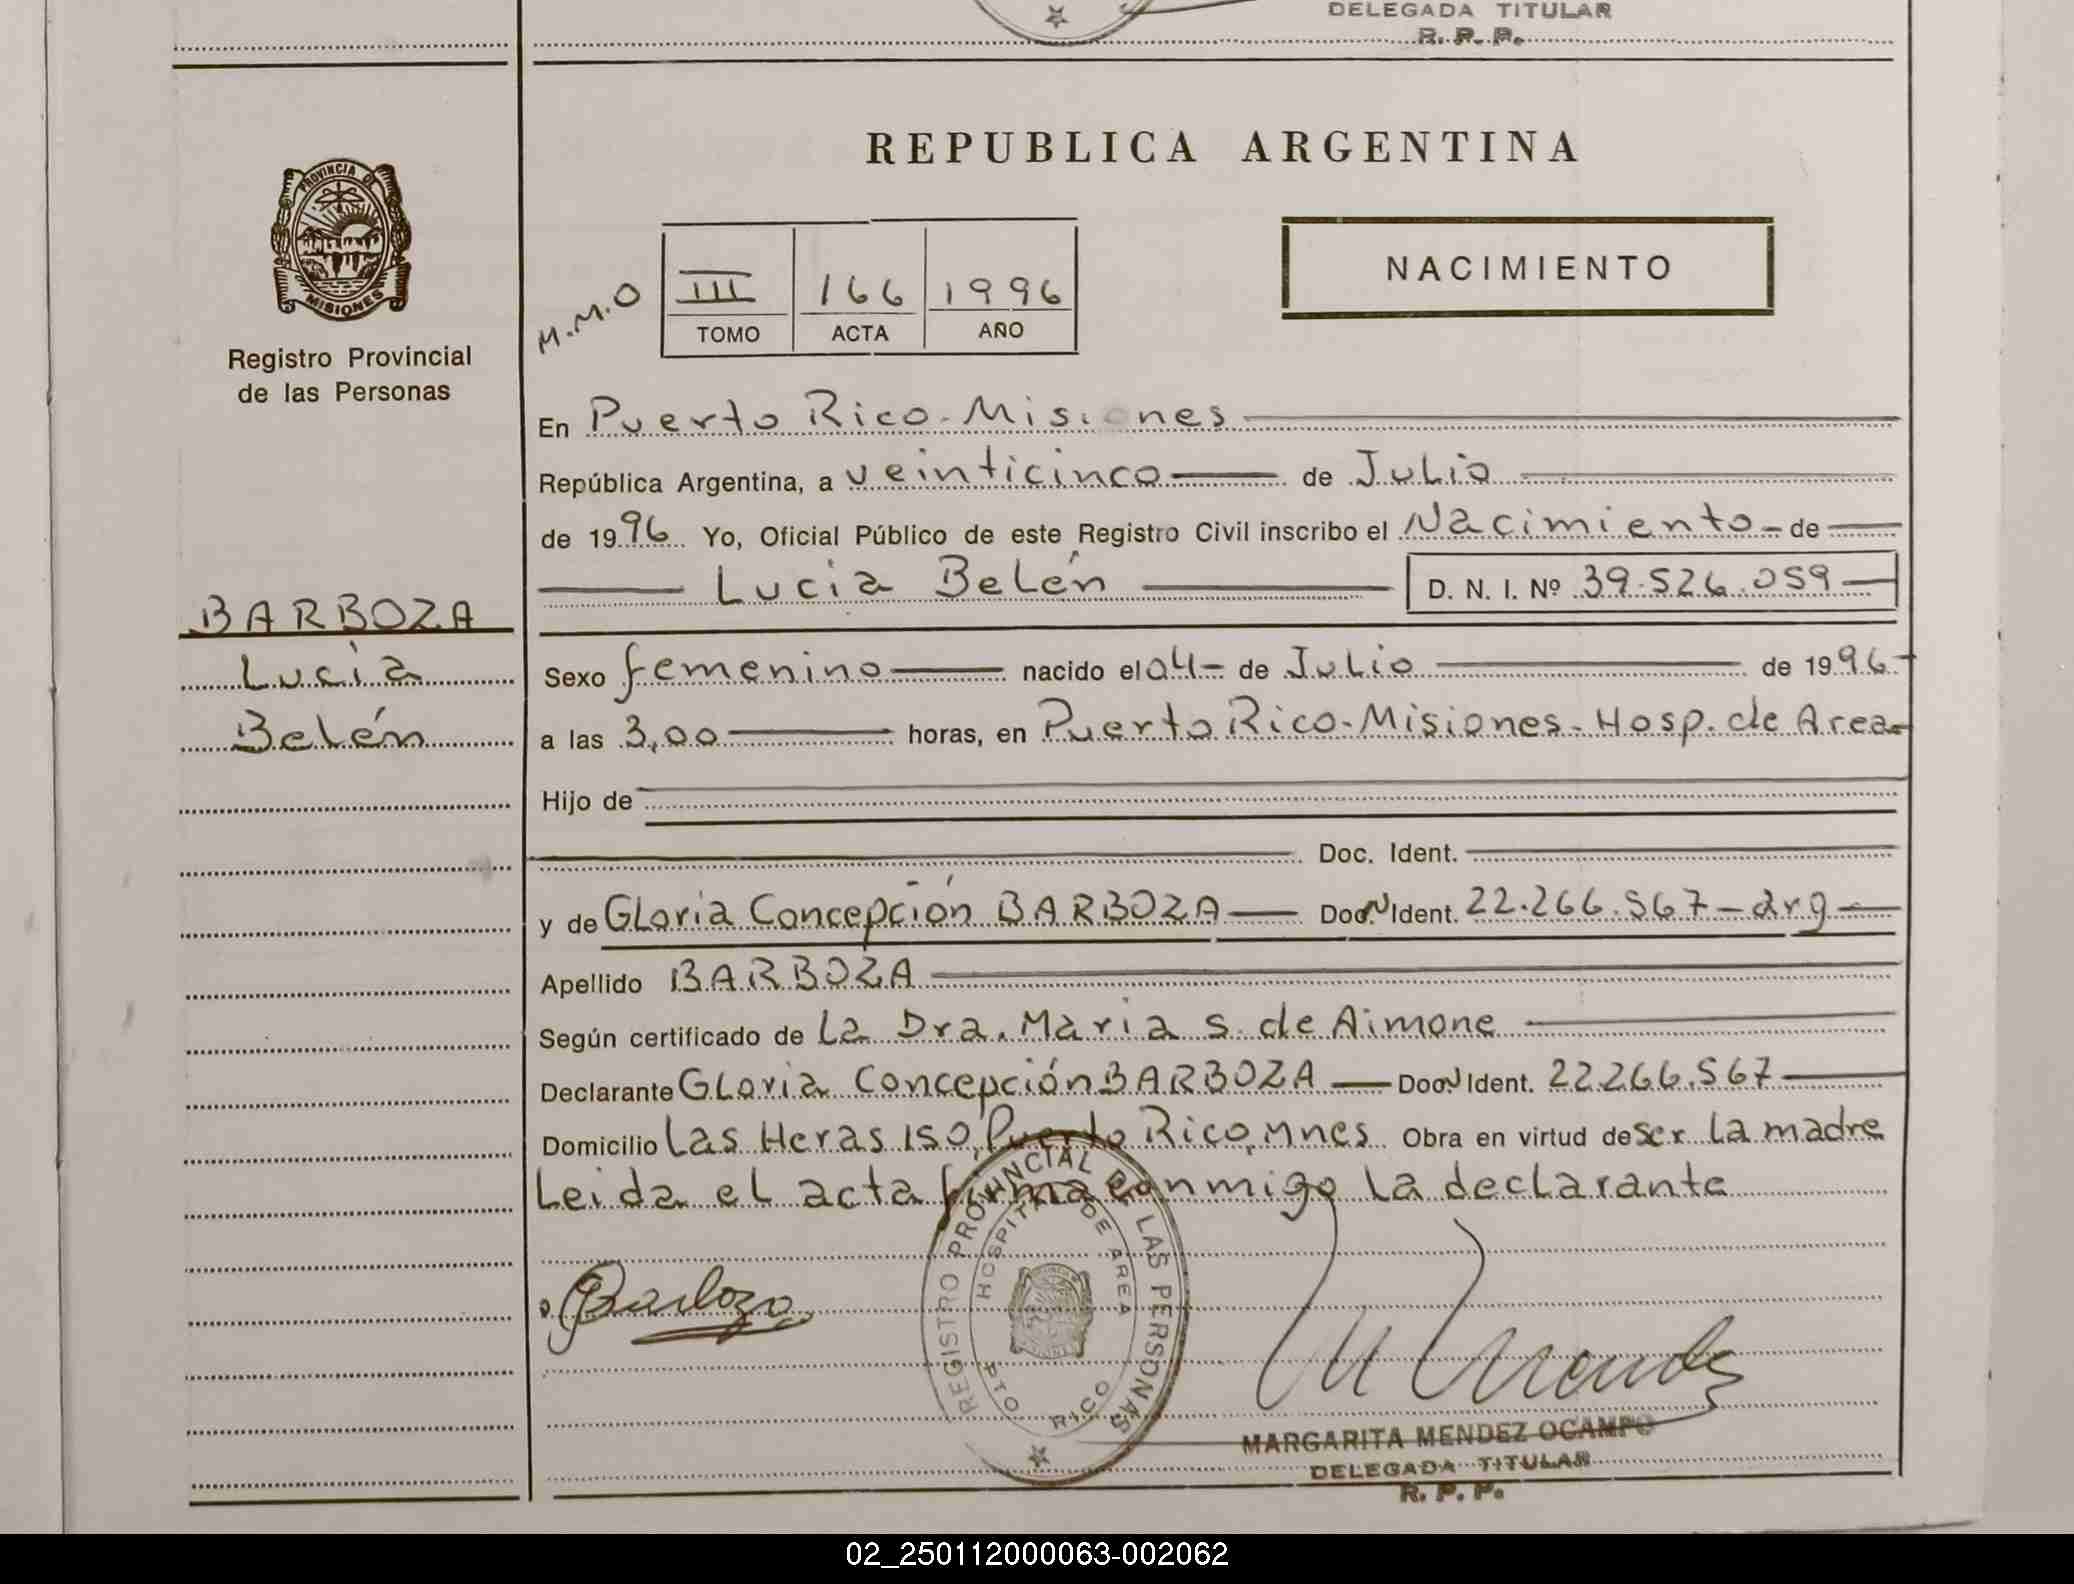 DELEGADA TITULAR
R. P. P.
REPUBLICA ARGENTINA
PROVINCIA DE
MISIONES
Registro Provincial
de las Personas
M.M.O
III 166 1996
TOMO ACTA AÑO
NACIMIENTO
En Puerto Rico - Misiones
República Argentina, a veinticinco de Julio
de 1996 Yo, Oficial Público de este Registro Civil inscribo el Nacimiento - de
Lucia Belén D. N. I. Nº 39.526.059
BARBOZA
Lucia
Belén
Sexo femenino nacido el 04 - de Julio de 1996
a las 3,00 horas, en Puerto Rico - Misiones - Hosp. de Area
Hijo de
Doc. Ident.
y de Gloria Concepción BARBOZA Doc. N Ident. 22.266.567 - arg
Apellido BARBOZA
Según certificado de La Dra. Maria S. de Aimone
Declarante Gloria Concepción BARBOZA Doc. N Ident. 22.266.567
Domicilio Las Heras 150, Puerto Rico, Mnes Obra en virtud de ser la madre
Leida el acta firma conmigo la declarante
REGISTRO PROVINCIAL DE LAS PERSONAS
HOSPITAL DE AREA
PTO RICO
G Barboza
M Mendez
MARGARITA MENDEZ OCAMPO
DELEGADA TITULAR
R. P. P.
02_250112000063-002062